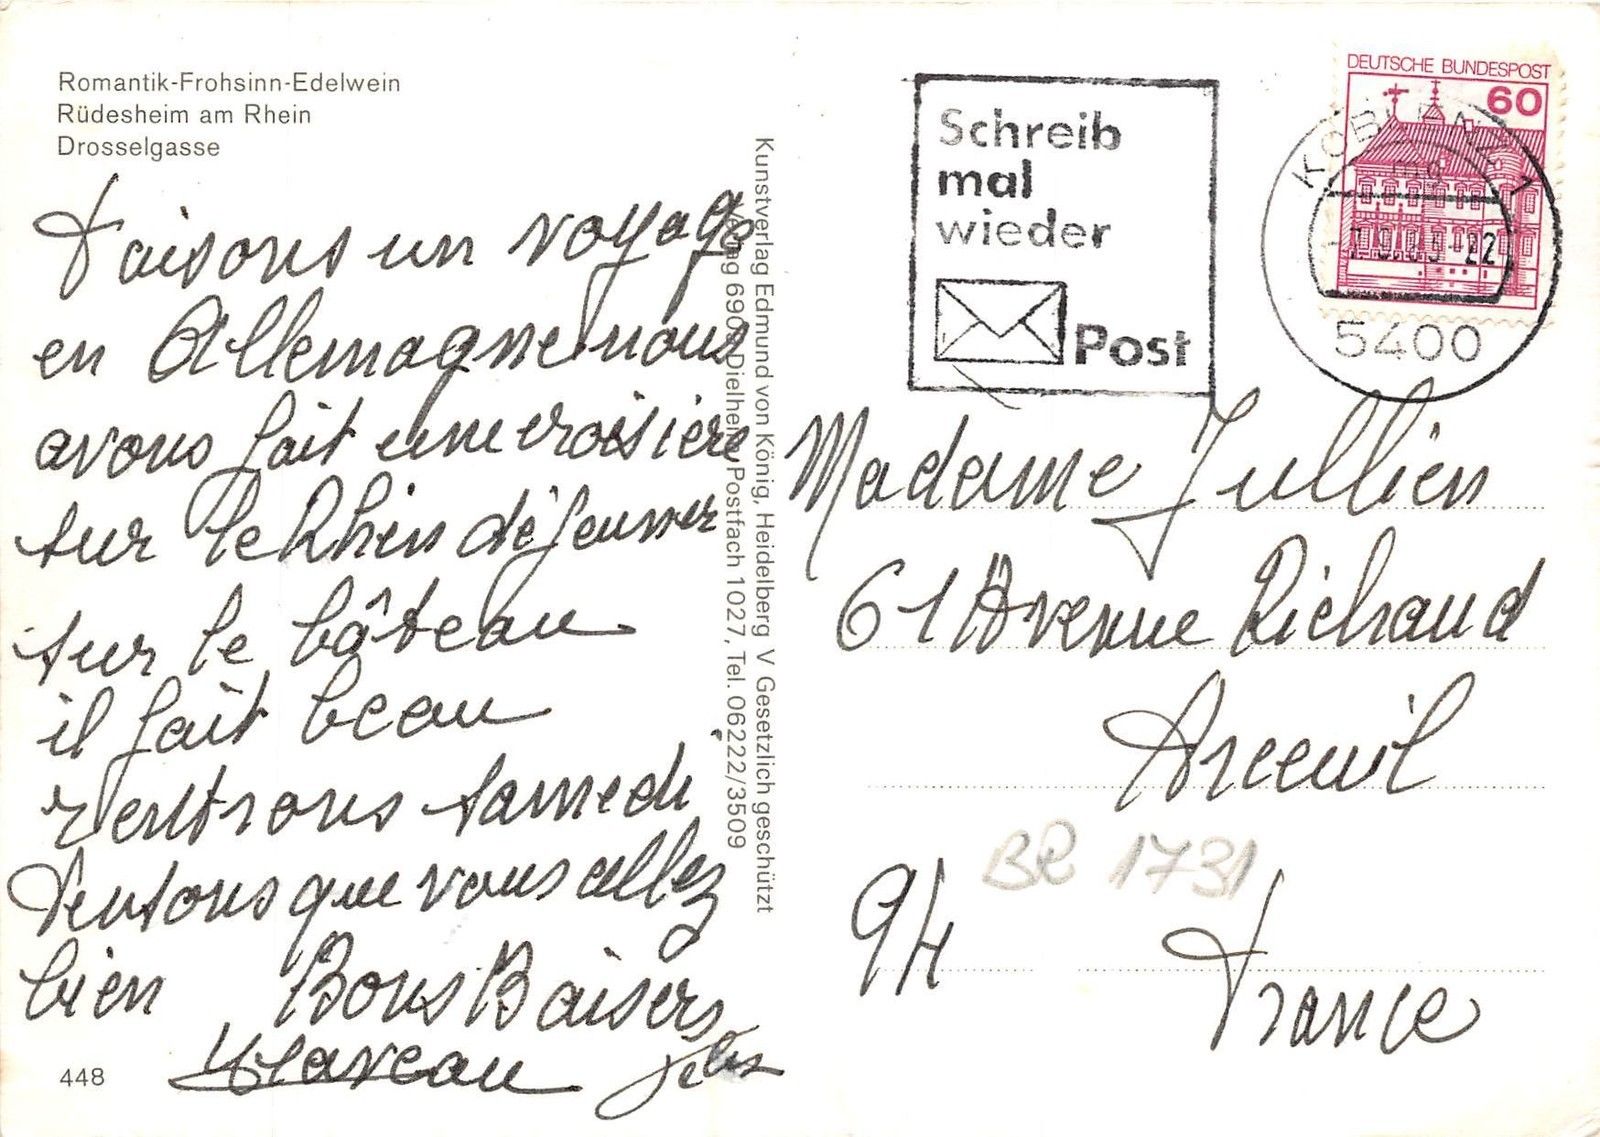 Romantik-Frohsinn-Edelwein
Rüdesheim am Rhein
Drosselgasse
Faisons un voyage
en Allemagne nous
avons fait une croisière
sur le Rhin déjeuner
sur le bâteau
il fait beau
rentrons samedi
Pentons que vous allez
bien Bons Baisers
448
Kunstverlag Edmund von König, Heidelberg V Gesetzlich geschützt
6901 Dielheim, Postfach 1027, Tel. 06222/3509
Schreib
mal
wieder
Post
DEUTSCHE BUNDESPOST
60
KOBLENZ 1
mg
5400
Madame Jullien
61 Avenue Richaud
Arceuil
BR 1731
94 France